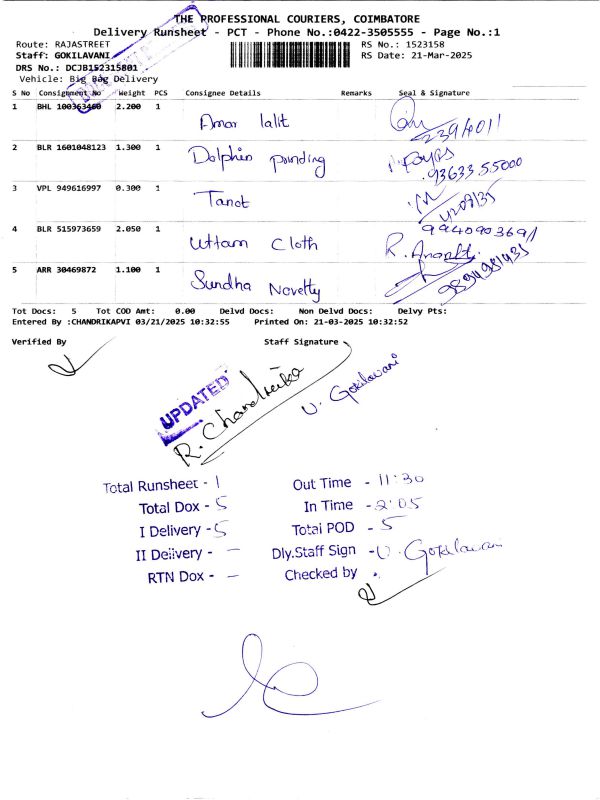 THE PROFESSIONAL COURIERS, COIMBATORE
Delivery Runsheet - PCT - Phone No.:0422-3505555 - Page No.:1
Route: RAJASTREET RS No.: 1523158
Staff: GOKILAVANI RS Date: 21-Mar-2025
DRS No.: DCJB152315801
Vehicle: Big Bag Delivery
S No Consignment No Weight PCS Consignee Details Remarks Seal & Signature
1 BHL 100363460 2.200 1 Amar lalit 2394011
2 BLR 1601048123 1.300 1 Dolphin prinding 93633 55000
3 VPL 949616997 0.300 1 Tanot
4 BLR 515973659 2.050 1 Uttam Cloth
5 ARR 30469872 1.100 1 Sundha Novelty
Tot Docs: 5 Tot COD Amt: 0.00 Delvd Docs: Non Delvd Docs: Delvy Pts:
Entered By :CHANDRIKAPVI 03/21/2025 10:32:55 Printed On: 21-03-2025 10:32:52
Verified By Staff Signature
UPDATED
R. Chandrika
V. Gokilavani
Total Runsheet - 1 Out Time - 11:30
Total Dox - 5 In Time - 2:05
I Delivery - 5 Total POD - 5
II Delivery - — Dly.Staff Sign - V. Gokilavani
RTN Dox - — Checked by